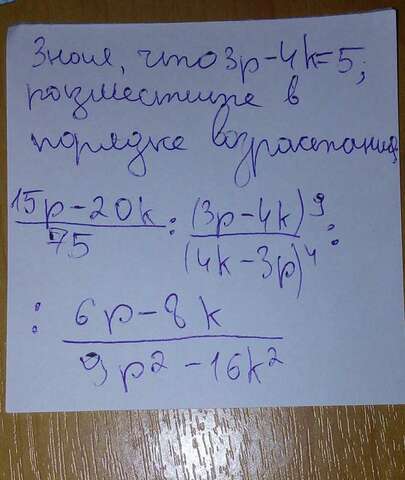 Зная, что 3p-4k=5;
разместите в
порядке возрастания
15p-20k/75 : (3p-4k)^9/(4k-3p)^4 :
: 6p-8k/9p²-16k²